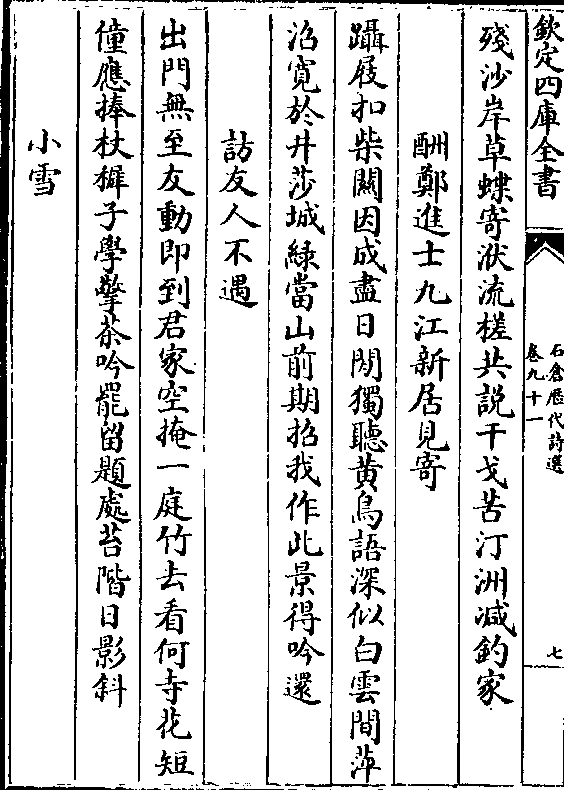 欽定四庫全書
石倉歷代詩選
卷九十一
七
殘沙岸草蝶寄洑流槎共説干戈苦汀洲减釣家
酬鄭進士九江新居見寄
躡屐扣柴關因成盡日閒獨聽黄鳥語深似白雲間萍
沼寛於井莎城緑當山前期招我作此景得吟還
訪友人不遇
出門無至友動即到君家空掩一庭竹去看何寺花短
僮應捧杖穉子學擎茶吟罷留題處苔階日影斜
小雪